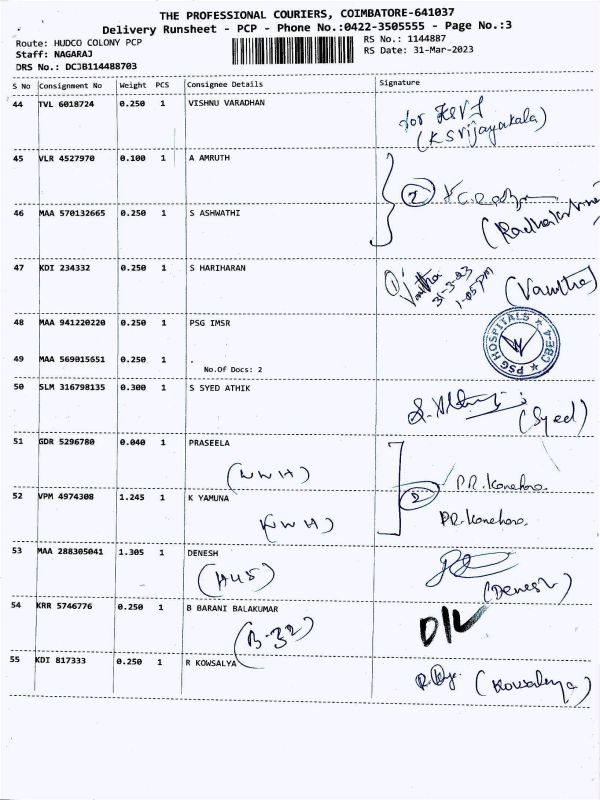 THE PROFESSIONAL COURIERS, COIMBATORE-641037
Delivery Runsheet - PCP - Phone No.:0422-3505555 - Page No.:3
Route: HUDCO COLONY PCP
RS No.: 1144887
Staff: NAGARAJ
RS Date: 31-Mar-2023
DRS No.: DCJB114488703
S No Consignment No Weight PCS Consignee Details Signature
44 TVL 6018724 0.250 1 VISHNU VARADHAN
(K S Vijayakala)
45 VLR 4527970 0.100 1 A AMRUTH
2
46 MAA 570132665 0.250 1 S ASHWATHI
47 KDI 234332 0.250 1 S HARIHARAN
Vanitha (Vanitha)
31-3-23
1.05pm
48 MAA 941220220 0.250 1 PSG IMSR
PSG HOSPITALS ★ CBE-4 ★
49 MAA 569015651 0.250 1
No.Of Docs: 2
50 SLM 316798135 0.300 1 S SYED ATHIK
(Syed)
51 GDR 5296780 0.040 1 PRASEELA
(NWH)
2 P.R. Kanehara
52 VPM 4974308 1.245 1 K YAMUNA
(NWH) P.R. Kanehara
53 MAA 288305041 1.305 1 DENESH
(H45) (Denesh)
54 KRR 5746776 0.250 1 B BARANI BALAKUMAR
(B-32) D/L
55 KDI 817333 0.250 1 R KOWSALYA
(Kowsalya)